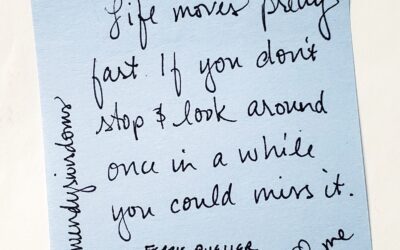 Life moves pretty
fast. If you don't
stop & look around
once in a while
you could miss it.
me